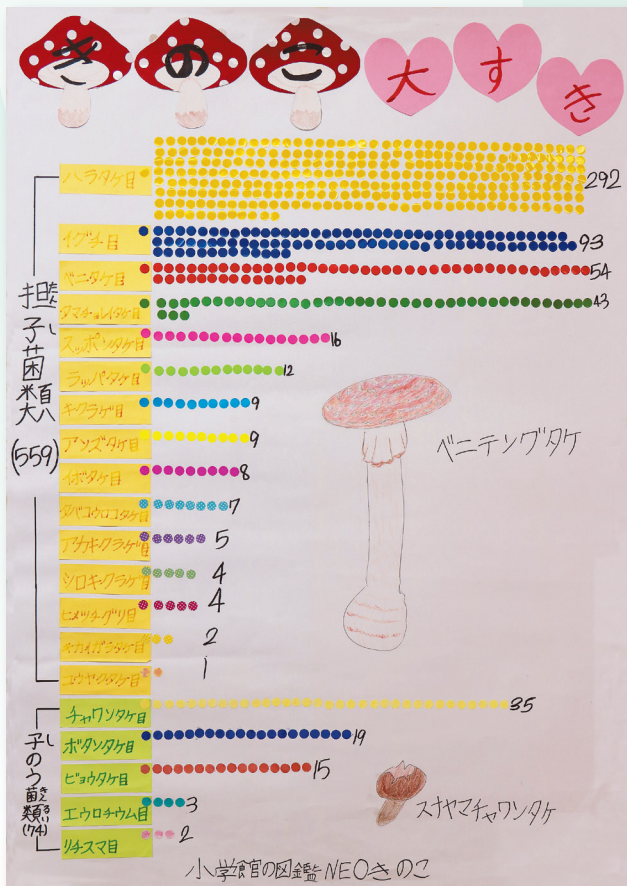 きのこ大すき
ハラタケ目 292
イグチ目 93
ベニタケ目 54
タマチョレイタケ目 43
スッポンタケ目 16
ラッパタケ目 12
キクラゲ目 9
アンズタケ目 9
イボタケ目 8
タバコウロコタケ目 7
アカキクラゲ目 5
シロキクラゲ目 4
ヒメツチグリ目 4
キカイガラタケ目 2
コウヤクタケ目 1
担子菌類
たん し
(559)
ベニテングタケ
チャワンタケ目 35
ボタンタケ目 19
ビョウタケ目 15
エウロチウム目 3
リチスマ目 2
子のう菌類(74)
し きんるい
スナヤマチャワンタケ
小学館の図鑑NEOきのこ